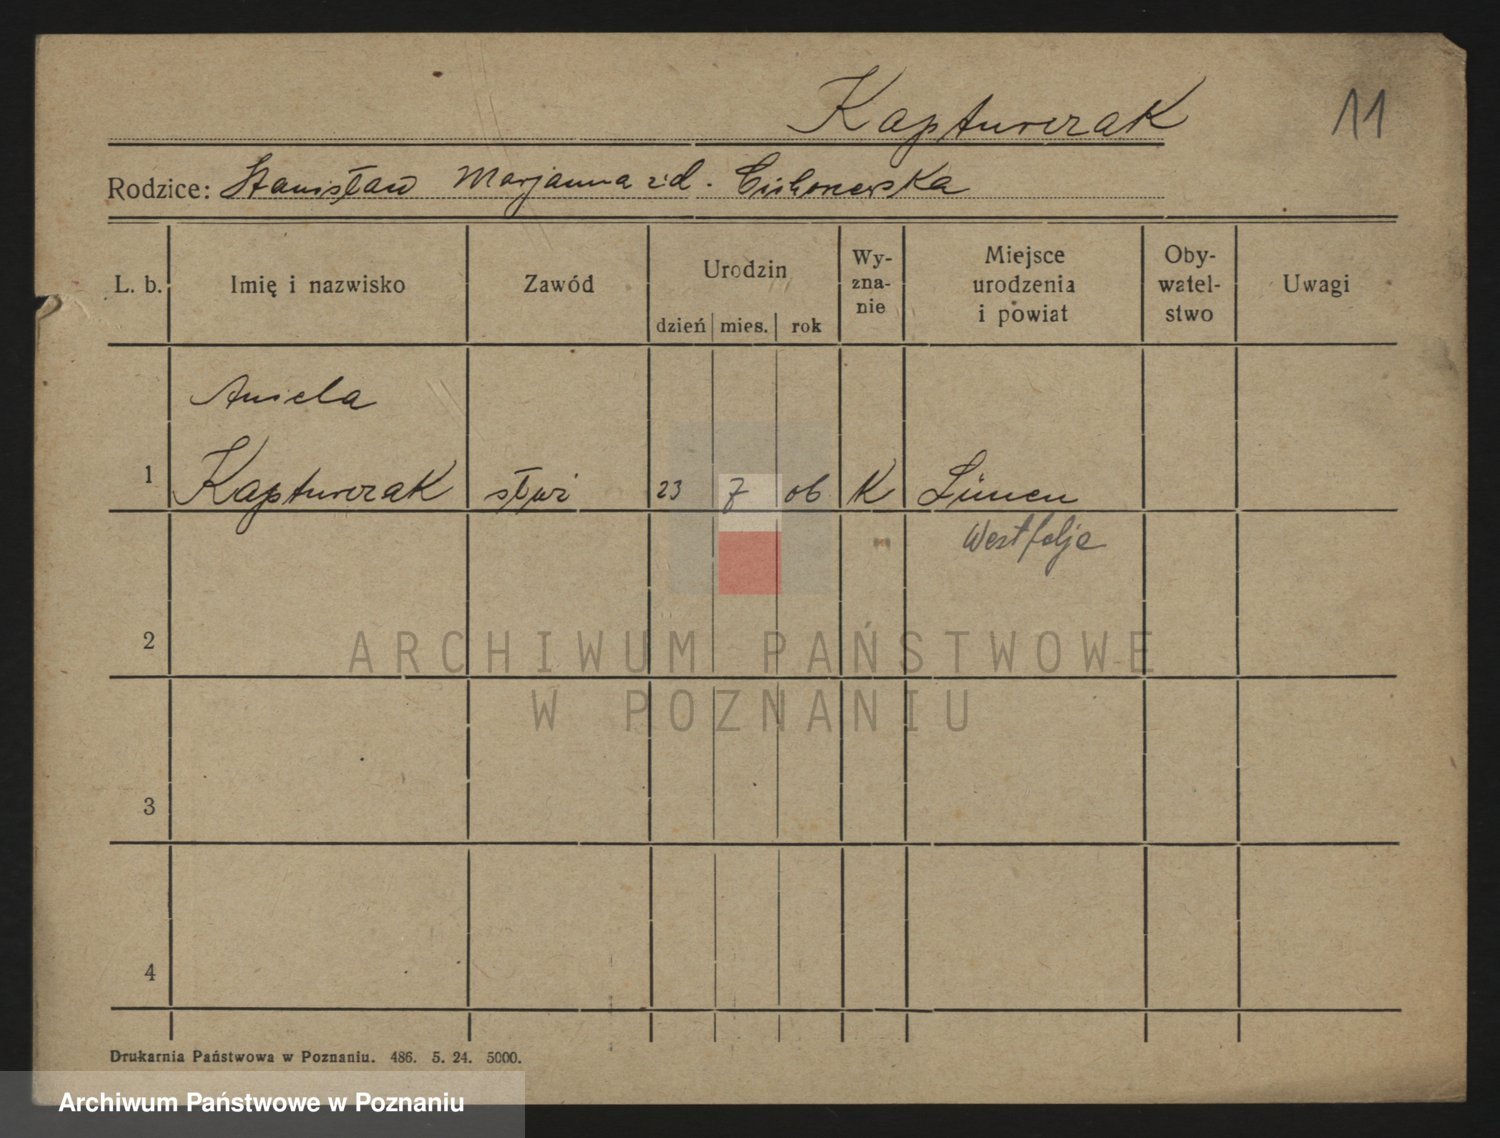 Kapturzak 11
Rodzice: Stanisław Marjanna zd.
L. b. Imię i nazwisko Zawód Urodzin dzień mies. rok Wy-zna-nie Miejsce urodzenia i powiat Oby-watel-stwo Uwagi
Aniela
1 Kapturzak 23 7 06 K Lünen
Westfalja
2
ARCHIWUM PAŃSTWOWE
W POZNANIU
3
4
Drukarnia Państwowa w Poznaniu. 486. 5. 24. 5000.
Archiwum Państwowe w Poznaniu